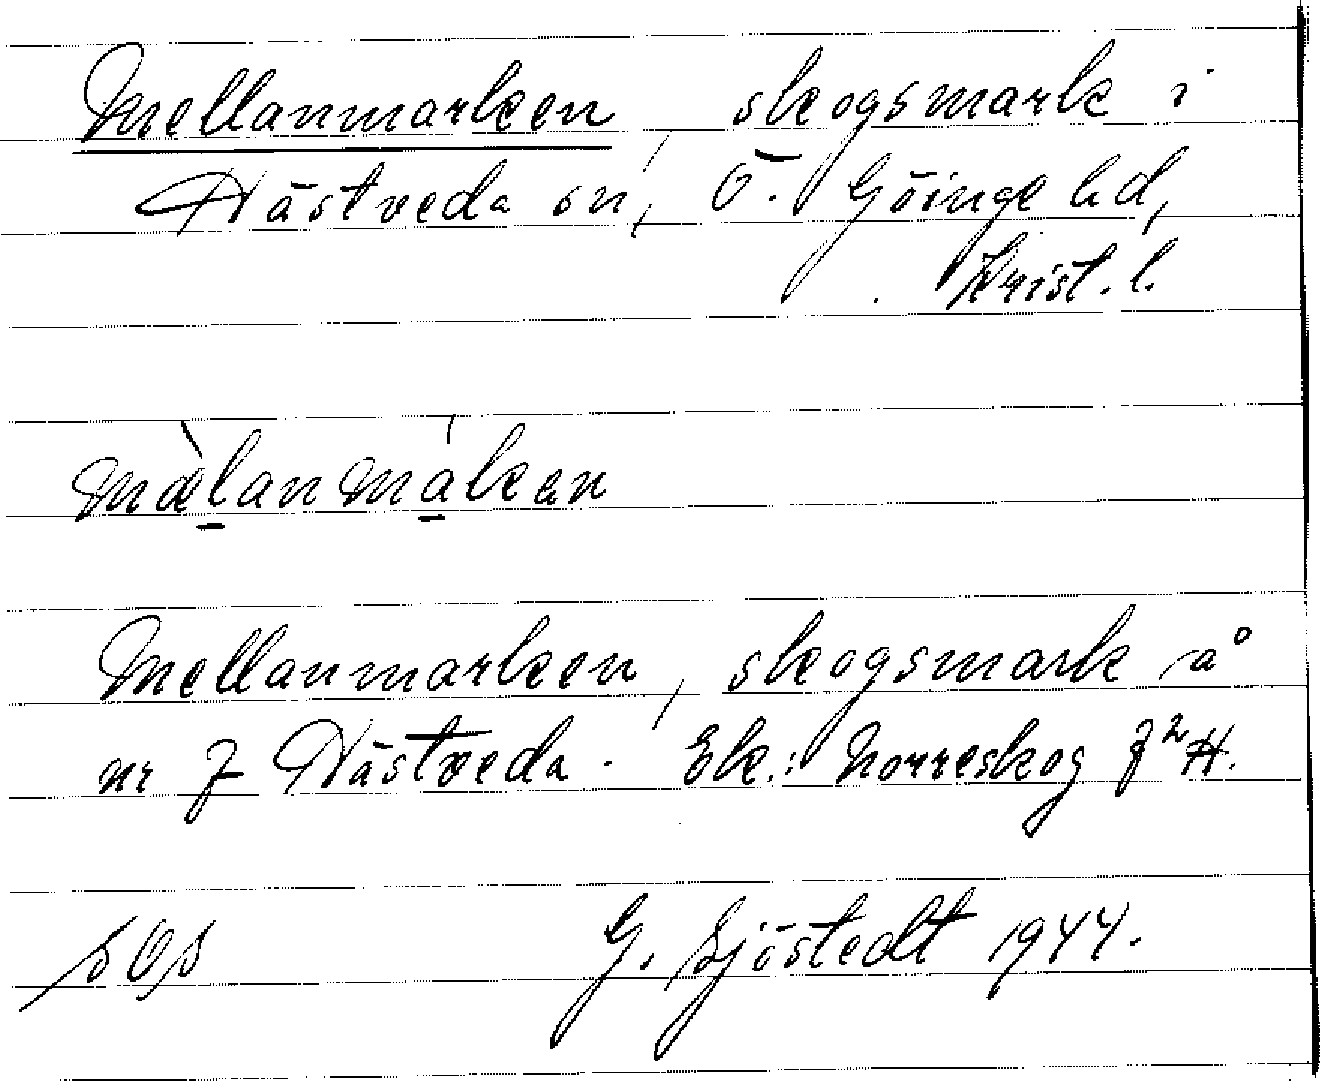 Mellanmarken, skogsmark i
Hästveda sn, Ö. Göinge hd,
Krist. l.
mæ̀lanmákan
Mellanmarken, skogsmark å
nr 7 Hästveda. Ek.: Norreskog 7² H.
G. Sjöstedt 1944.